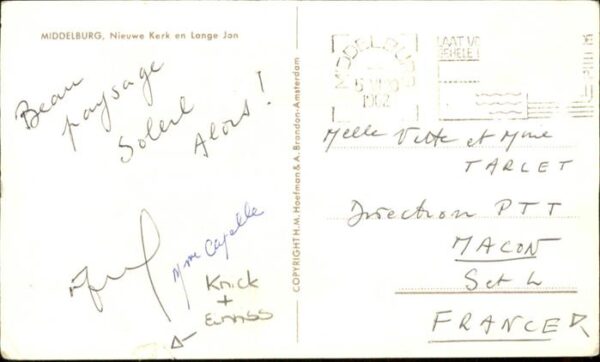 MIDDELBURG, Nieuwe Kerk en Lange Jan
Beau
paysage
Soleil
Alors!
Mme Capelle
Knick
+
COPYRIGHT H.M. Hoefman & A. Brandon-Amsterdam
MIDDELBURG
1962
Melle et Mme
TARLET
Direction PTT
MACON
S et L
FRANCE